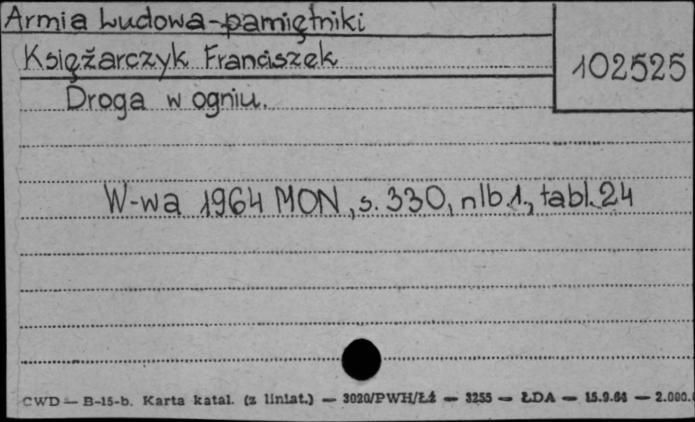 Armia Ludowa-pamiętniki
Księżarczyk Franciszek
102525
Droga w ogniu.
W-wa 1964 MON, s. 330, nlb.1., tabl.24
CWD — B-15-b. Karta katal. (z liniat.) — 3020/PWH/Łź — 3255 — ŁDA — 15.9.64 — 2.000.